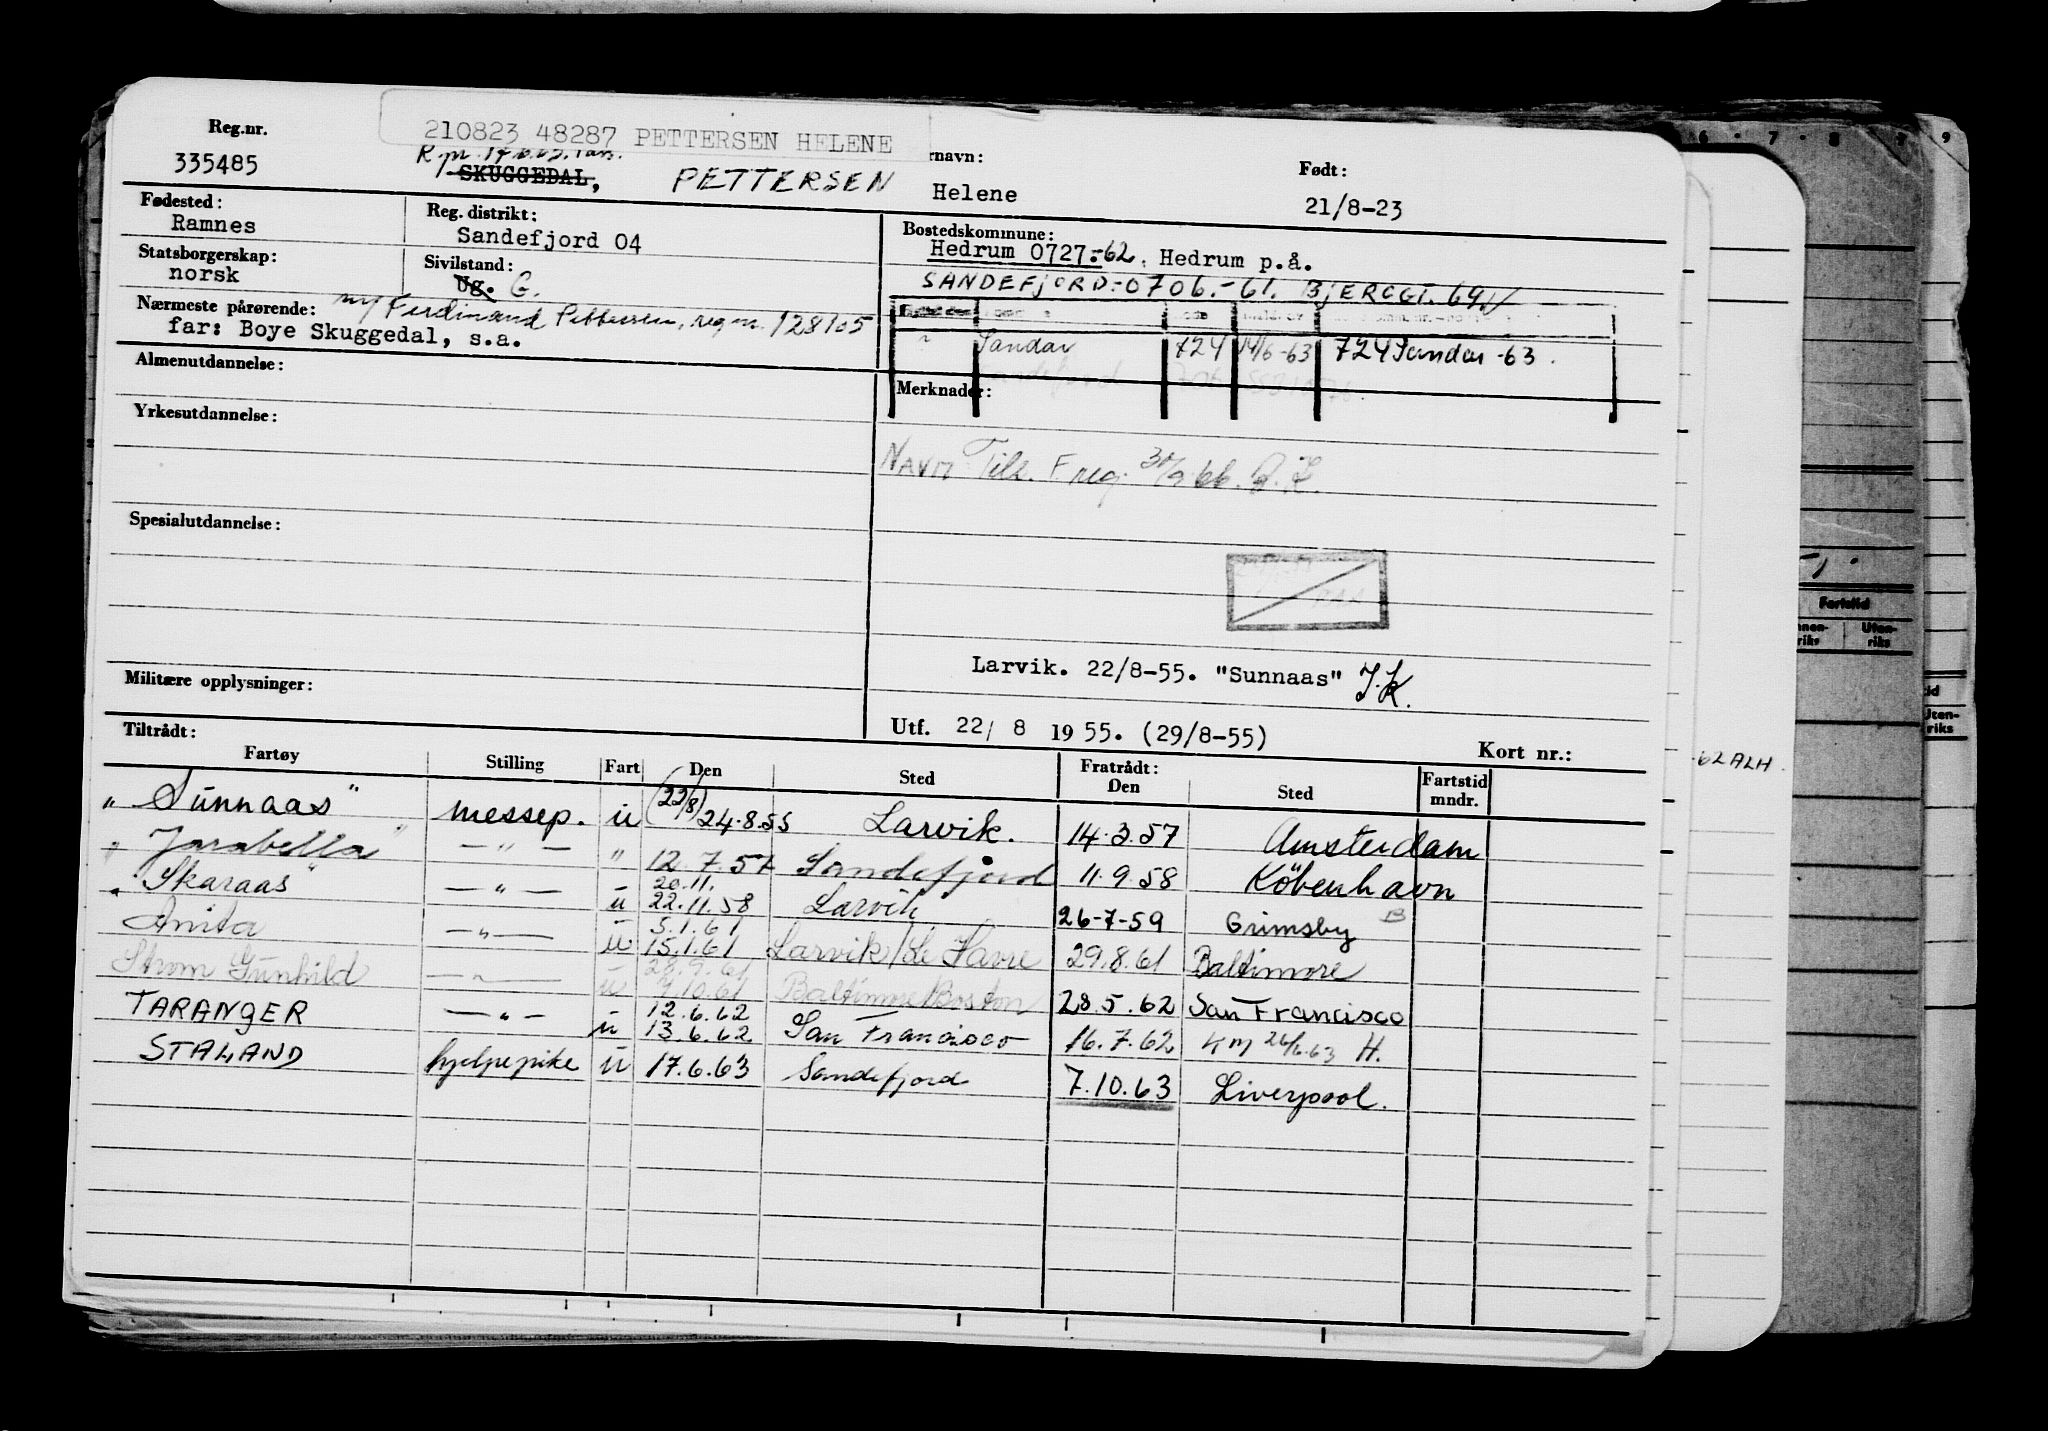 Reg.nr.
210823 48287 PETTERSEN HELENE
335485
SKUGGEDAL, PETTERSEN
rnavn:
Helene
Født:
21/8-23
Fødested:
Ramnes
Reg. distrikt:
Sandefjord 04
Statsborgerskap:
norsk
Sivilstand:
Ug. G.
Bostedskommune:
Hedrum 0727:-62, Hedrum p.å.
SANDEFJORD:-0706.-61. BJERGGT. 69
Nærmeste pårørende: m/ Ferdinand Pettersen, reg nr. 128105
far: Boye Skuggedal, s.a.
" Sandar 724 14/6-63 724 Sandar -63.
Almenutdannelse:
Merknader:
Yrkesutdannelse:
Navn Tils. F reg. 30/9.66.
Spesialutdannelse:
Larvik. 22/8-55. "Sunnaas" J.K.
Militære opplysninger:
Utf. 22/ 8 1955. (29/8-55)
Kort nr.:
Tiltrådt:
Fartøy Stilling Fart Den Sted Fratrådt: Den Sted Fartstid mndr.
"Sunnaas" messep. u (22/8) 24.8.55 Larvik. 14.3.57 Amsterdam
"Jarabella" — " — " 12.7.57 Sandefjord 11.9.58 København
"Skaraas" — " — u 20.11. 22.11.58 Larvik 26-7-59 Grimsby
Anita — " — u 5.1.61 15.1.61 Larvik/Le Havre 29.8.61 Baltimore
Strom Gunhild — " — u 28.9.61 9.10.61 Baltimore/Boston 28.5.62 San Francisco
TARANGER — " — u 12.6.62 13.6.62 San Francisco 16.7.62 Km 26/6.63 H.
STALAND hjelpepike u 17.6.63 Sandefjord 7.10.63 Liverpool.
6 7 8 9
Fartstid
Uten-
riks
Uten-
riks
62 ALH.